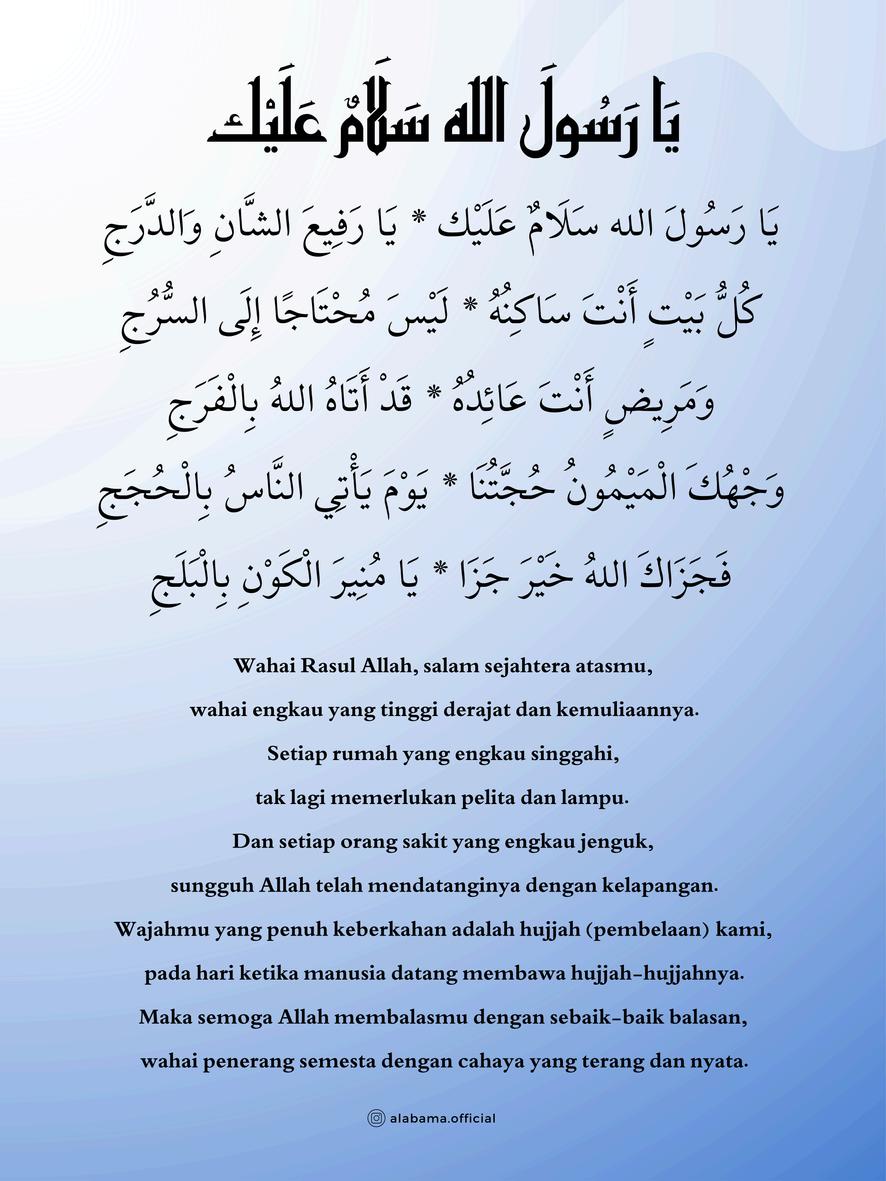 يَا رَسُولَ الله سَلَامٌ عَلَيْك
يَا رَسُولَ الله سَلَامٌ عَلَيْك * يَا رَفِيعَ الشَّانِ وَالدَّرَجِ
كُلُّ بَيْتٍ أَنْتَ سَاكِنُهُ * لَيْسَ مُحْتَاجًا إِلَى السُّرُجِ
وَمَرِيضٍ أَنْتَ عَائِدُهُ * قَدْ أَتَاهُ اللهُ بِالْفَرَجِ
وَجْهُكَ الْمَيْمُونُ حُجَّتُنَا * يَوْمَ يَأْتِي النَّاسُ بِالْحُجَجِ
فَجَزَاكَ اللهُ خَيْرَ جَزَا * يَا مُنِيرَ الْكَوْنِ بِالْبَلَجِ
Wahai Rasul Allah, salam sejahtera atasmu,
wahai engkau yang tinggi derajat dan kemuliaannya.
Setiap rumah yang engkau singgahi,
tak lagi memerlukan pelita dan lampu.
Dan setiap orang sakit yang engkau jenguk,
sungguh Allah telah mendatanginya dengan kelapangan.
Wajahmu yang penuh keberkahan adalah hujjah (pembelaan) kami,
pada hari ketika manusia datang membawa hujjah-hujjahnya.
Maka semoga Allah membalasmu dengan sebaik-baik balasan,
wahai penerang semesta dengan cahaya yang terang dan nyata.
alabama.official